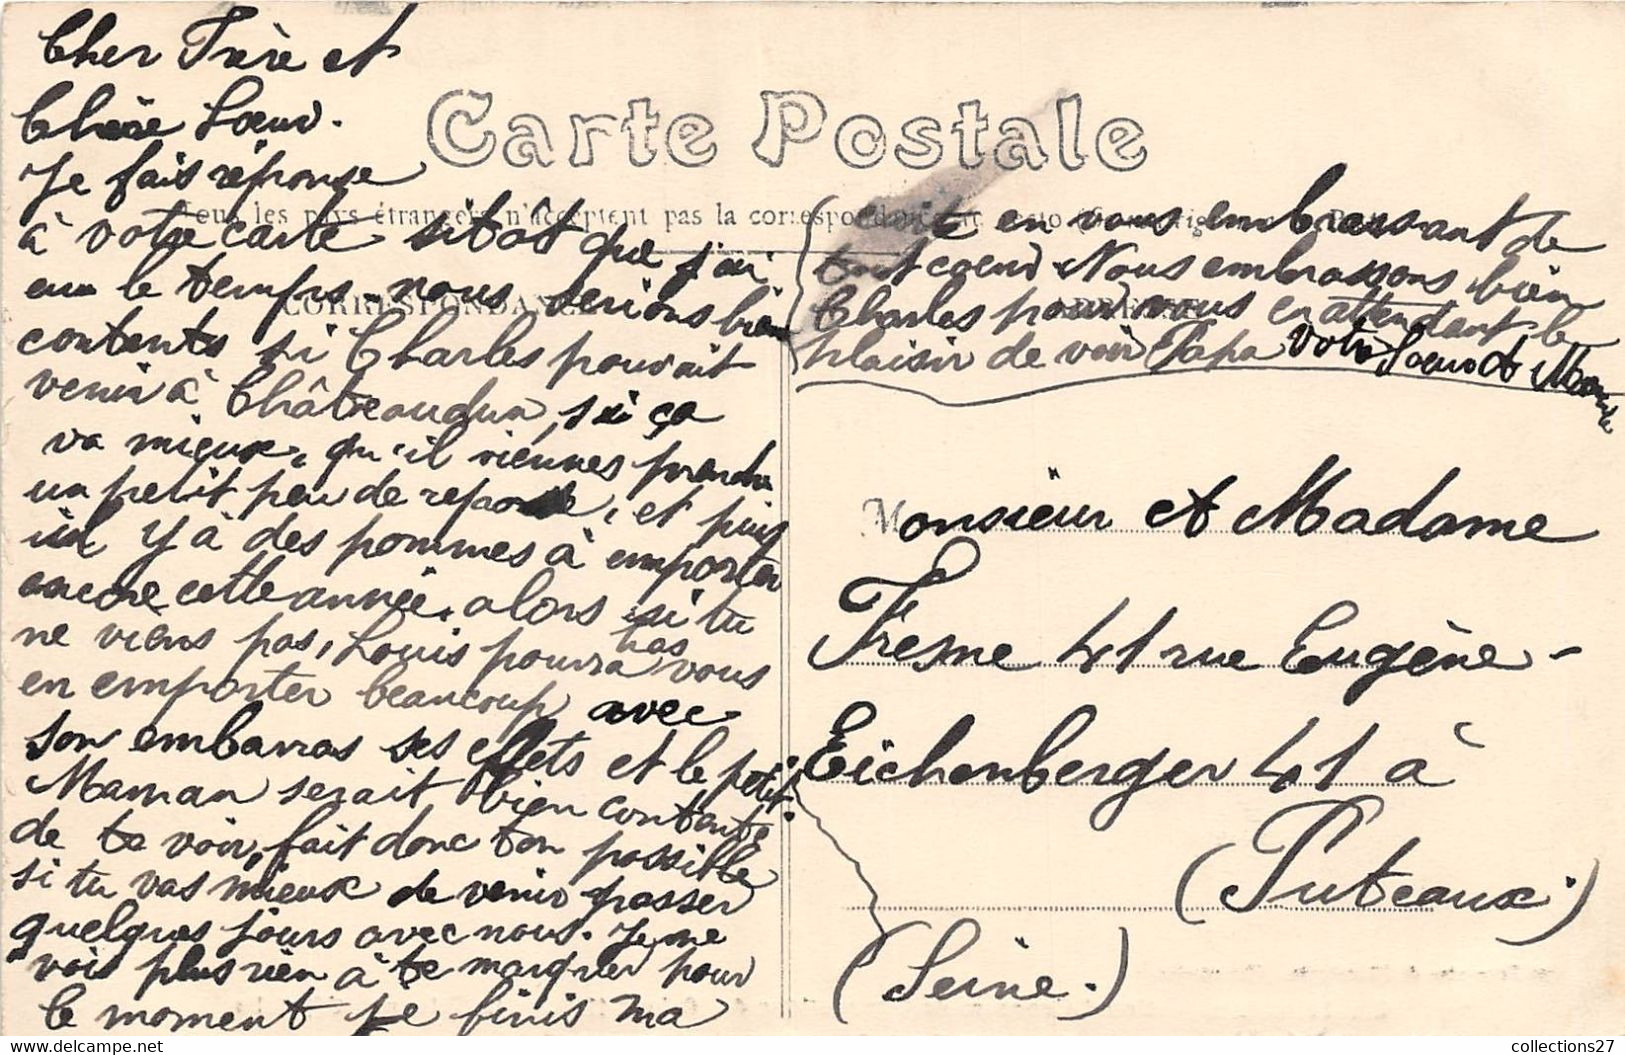 Cher Frère et
Chère Soeur.
Je fais réponse
à votre carte sitôt que j'ai
eu le temps. nous serions bien
contents si Charles pouvait
venir à Châteaudun, si ça
va mieux, qu'il viennes prendre
un petit peu de repos, et puis
il y à des pommes à emporter
encore cette année. alors si tu
ne viens pas, Louis pourra pas vous
en emporter beaucoup avec
son embarras ses effets et le petit.
Maman serait bien contente
de te voir, fait donc ton possible
si tu vas mieux de venir passer
quelques jours avec nous. Je ne
vois plus rien à te marquer pour
le moment je finis ma
Carte Postale
Tous les pays étrangers n'acceptent pas la correspondance au recto
CORRESPONDANCE
ADRESSE
carte en vous embrassant de
tout coeur. Nous embrassons bien
Charles pour vous en attendant le
plaisir de voir Papa Votre Soeur et Maman
Monsieur et Madame
Fresne 41 rue Eugène-
Eichenberger 41 à
(Puteaux.)
(Seine.)
collections27